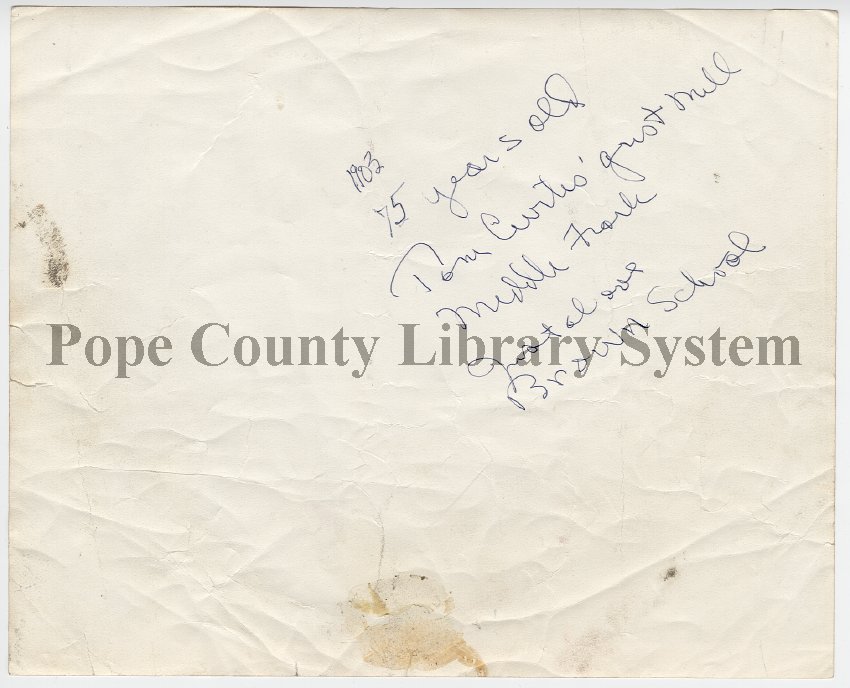 1983
75 years old
Tom Curtis' grist mill
Middle Fork
Just above
Brown School
Pope County Library System